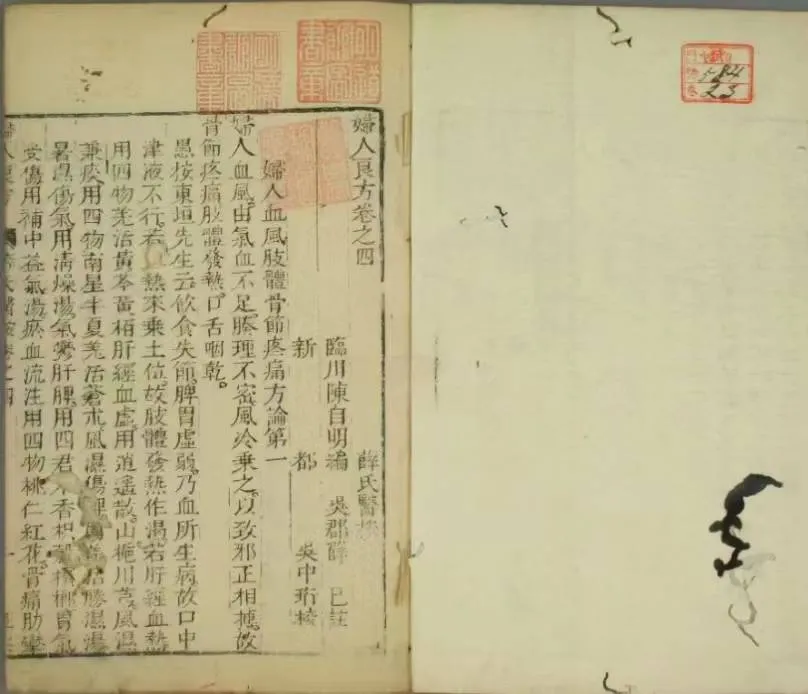 184
23
婦人良方卷之四 薛氏醫按
臨川陳自明編 吳郡薛 已註
新 都 吳中珩校
婦人血風肢體骨節疼痛方論第一
婦人血風由氣血不足腠理不密風冷乘之以致邪正相搏故
骨節疼痛肢體發熱口舌咽乾。
愚按東垣先生云飲食失節脾胃虛弱乃血所生病故口中
津液不行若熱來乘土位故肢體發熱作渴若肝經血熱
用四物羌活黃芩黃栢肝經血虛用逍遙散山梔川芎風濕
兼痰用四物南星半夏羌活蒼朮風濕傷脾用勝濕湯
暑濕傷氣用清燥湯氣鬱肝脾用四君木香枳檳榔胃氣
受傷用補中益氣湯瘀血流注用四物桃仁紅花骨痛肋攣